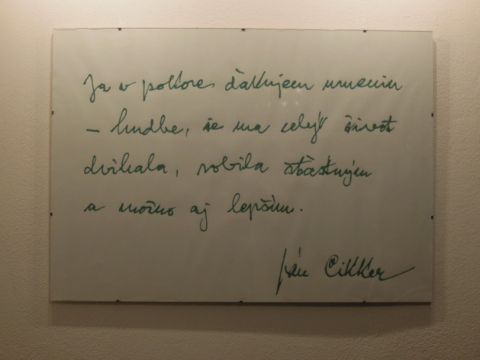 Ja v pokore ďakujem umeniu
– hudbe, že ma celý život
dvíhala, robila šťastným
a možno aj lepším.
Ján Cikker